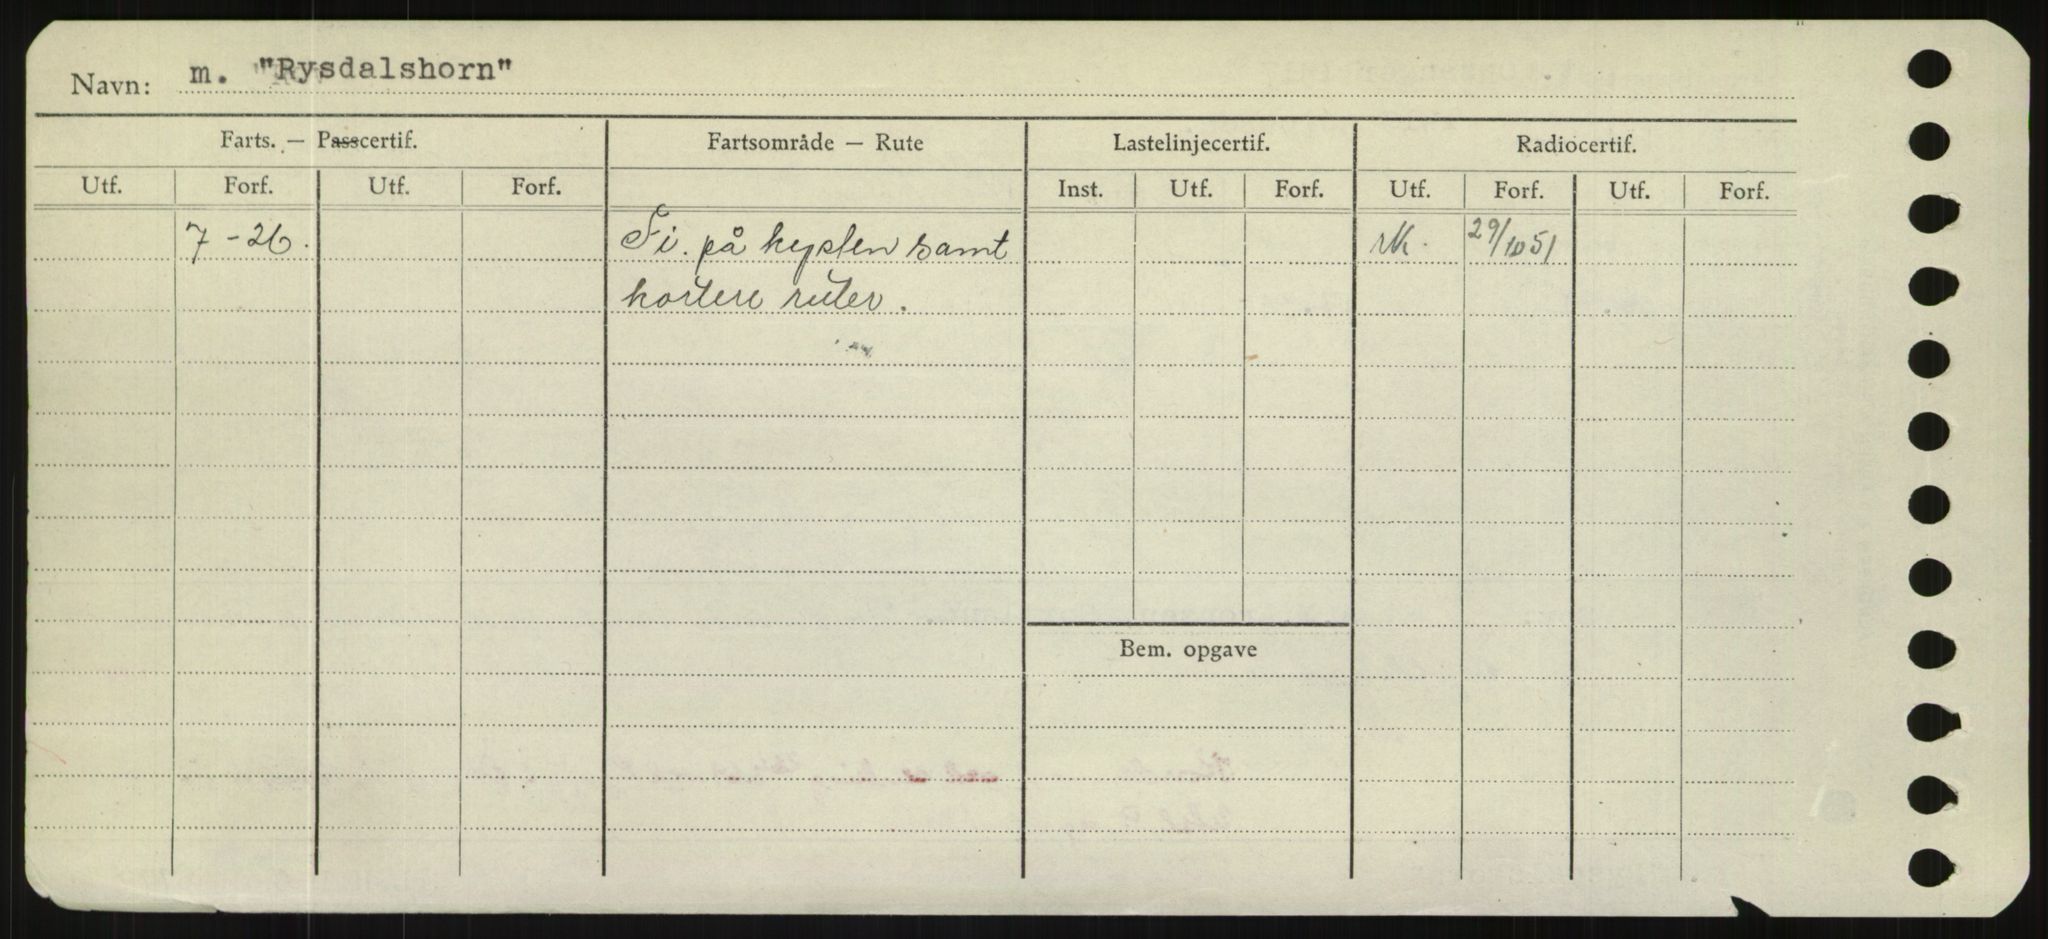 Navn: m. "Rysdalshorn"
Farts. — Passcertif. Fartsområde — Rute Lastelinjecertif. Radiocertif.
Utf. Forf. Utf. Forf. Inst. Utf. Forf. Utf. Forf. Utf. Forf.
7-26. Fi. på kysten samt rk. 29/10 51
kortere ruter.
Bem. opgave